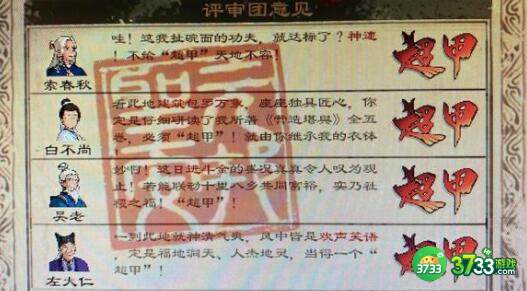 评审团意见
哇！这我扯碗面的功夫，就达标了？神速
！不给“超甲”天地不容！
索春秋
超甲
看此地建筑包罗万象，座座独具匠心，你
定是仔细研读了我所著《营造堪舆》全五
卷，必须“超甲”！就由你继承我的衣钵
白不尚
超甲
妙啊！这日进斗金的盛况真真令人叹为观
止！若能联动十里八乡共同富裕，实乃社
稷之福！“超甲”！
吴老
超甲
一到此地就神清气爽，风中皆是欢声笑语
，定是福地洞天、人杰地灵，当得一个“
超甲”！
左大仁
超甲
3733
3733游戏
.com